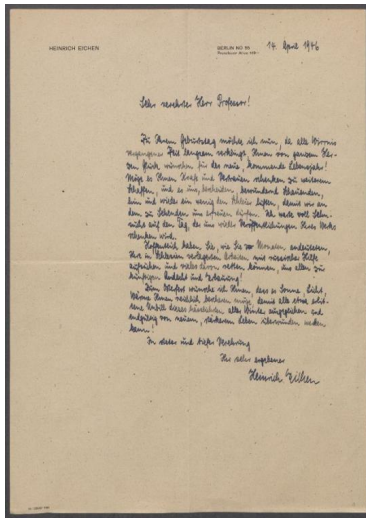 HEINRICH EICHEN
BERLIN NO 55
14. April 1946
Sehr verehrter Herr Professor!
Zu Ihrem Geburtstag möchte ich nun, da alle Wirrnis
vergangener Zeit langsam verklingt, Ihnen von ganzem Her-
zen Glück wünschen für das neue, kommende Lebensjahr!
Möge es Ihnen Kraft und Vertrauen schenken zu weiterem
Schaffen, und es uns, bewundernd Schauenden,
hin und wieder ein wenig den Schleier lüften, damit wir an
dem zu Sehenden uns erfreuen dürfen. Ich warte voll Sehn-
sucht auf den Tag, der uns wieder Veröffentlichungen Ihres Werks
schenken wird.
Hoffentlich haben Sie, wie Sie vor Monaten andeuteten,
Ihre in Schlesien verlagerten Arbeiten mit russischer Hilfe
aufsuchen und vieles davon retten können, uns allen zur
künftigen Andacht und Erbauung!
Zum Osterfest wünsche ich Ihnen, dass es Sonne, Licht,
Wärme Ihnen reichlich bescheren möge, damit alle etwa erlit-
tene Unbill dieses Winters ausgeglichen und
endgültig von neuem, stärkerem Leben überwunden werden
kann!
In steter und tiefer Verehrung
Ihr sehr ergebener
Heinrich Eichen